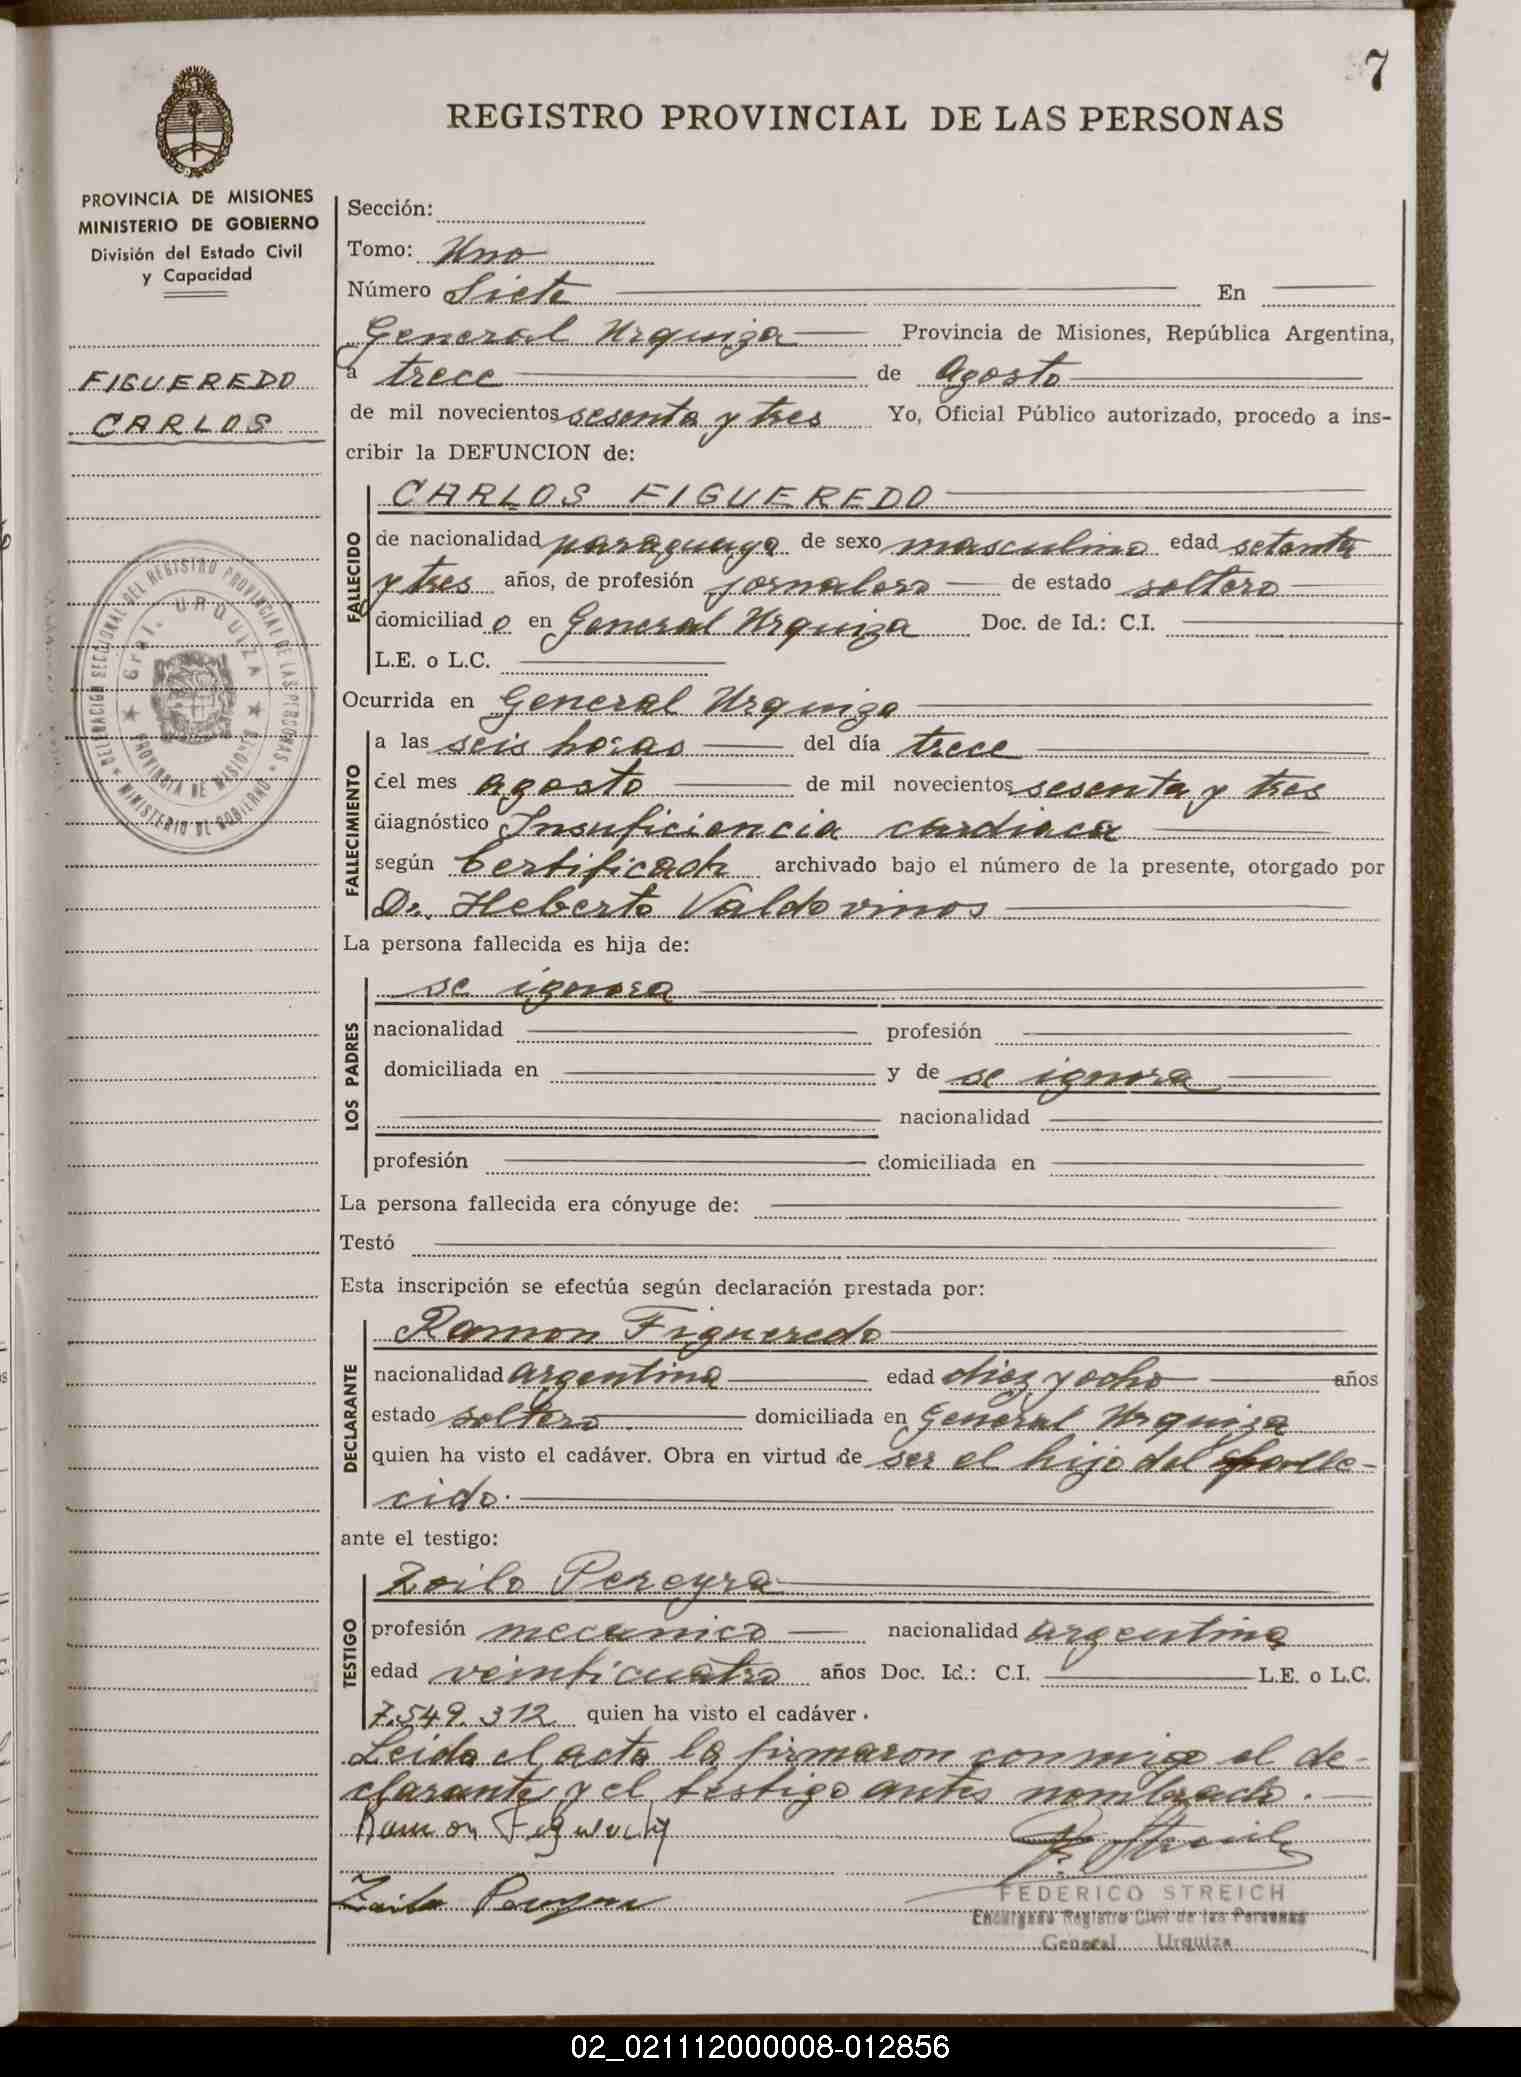 7
REGISTRO PROVINCIAL DE LAS PERSONAS
PROVINCIA DE MISIONES
MINISTERIO DE GOBIERNO
División del Estado Civil
y Capacidad
FIGUEREDO
CARLOS
DELEGACION SECCIONAL DEL REGISTRO PROVINCIAL DE LAS PERSONAS
★ MINISTERIO DE GOBIERNO ★
Gral. URQUIZA
★ PROVINCIA DE MISIONES ★
Sección:
Tomo: Uno
Número Siete En
General Urquiza Provincia de Misiones, República Argentina,
a trece de Agosto
de mil novecientos sesenta y tres Yo, Oficial Público autorizado, procedo a ins-
cribir la DEFUNCION de:
FALLECIDO
CARLOS FIGUEREDO
de nacionalidad paraguaya de sexo masculino edad setenta
y tres años, de profesión jornalero de estado soltero
domiciliad o en General Urquiza Doc. de Id.: C.I.
L.E. o L.C.
Ocurrida en General Urquiza
FALLECIMIENTO
a las seis horas del día trece
del mes agosto de mil novecientos sesenta y tres
diagnóstico Insuficiencia cardiaca
según Certificado archivado bajo el número de la presente, otorgado por
Dr. Heberto Valdovinos
La persona fallecida es hija de:
LOS PADRES
se ignora
nacionalidad profesión
domiciliada en y de se ignora
nacionalidad
profesión domiciliada en
La persona fallecida era cónyuge de:
Testó
Esta inscripción se efectúa según declaración prestada por:
DECLARANTE
Ramon Figueredo
nacionalidad argentina edad diez y ocho años
estado soltero domiciliada en General Urquiza
quien ha visto el cadáver. Obra en virtud de ser el hijo del falle-
cido.
ante el testigo:
TESTIGO
Zoilo Pereyra
profesión mecanico nacionalidad argentina
edad veinticuatro años Doc. Id.: C.I. L.E. o L.C.
7.549.312 quien ha visto el cadáver.
Leida el acta la firmaron conmigo el de-
clarante y el testigo antes nombrado.
Ramon
Zoilo
FEDERICO STREICH
Encargado Registro Civil de las Personas
General Urquiza
02_021112000008-012856